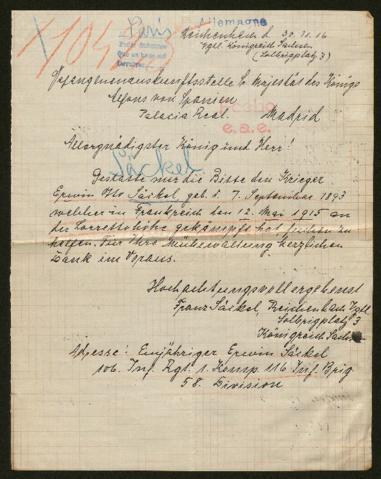 Paris
Allemagne
Reichenbach d. 30.11.16
Vgtl. Königreich Sachsen
(Solbrigplatz 3)
Gefangenenauskunftsstelle Sr Majestät des Königs
Alfons von Spanien
Palacio Real. Madrid
e.a.e.
Allergnädigster König und Herr!
Säckel
Gestatte mir die Bitte den Krieger
Erwin Otto Säckel, geb. d. 7. September 1893
welcher in Frankreich den 12. Mai 1915 an
der Lorettohöhe gekämpft hat finden zu
helfen. Für Ihre Mühewaltung herzlichen
Dank im Voraus.
Hochachtungsvoll ergebenst
Franz Säckel, Reichenbach Vgtl.
Solbrigplatz 3
Königreich Sachsen
Adresse: Einjähriger Erwin Säckel
106. Inf. Rgt. 1. Komp. 116 Inf. Brig
58. Division